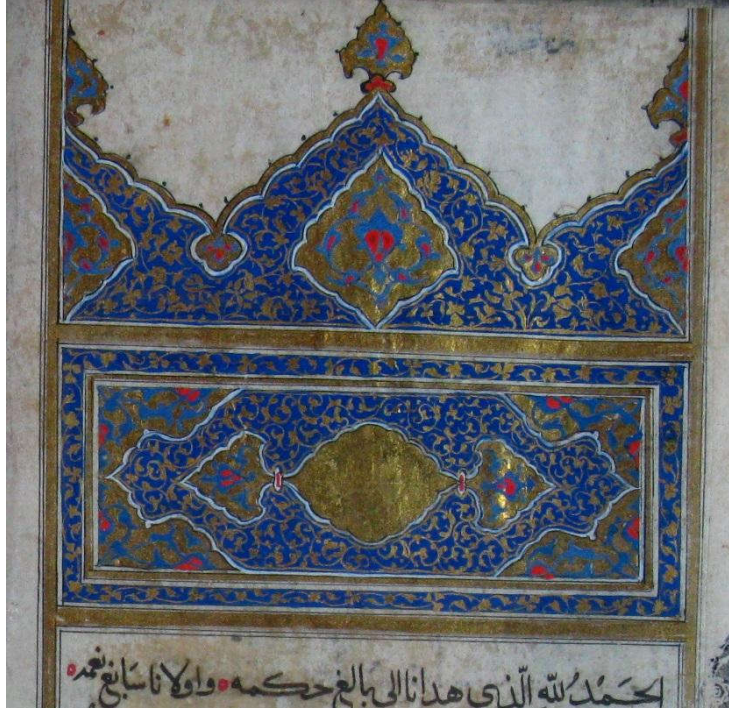 الحَمْدُ لِلّهِ الَّذِي هدانا الى بالغ حكمه واولانا سَابغ نعمه